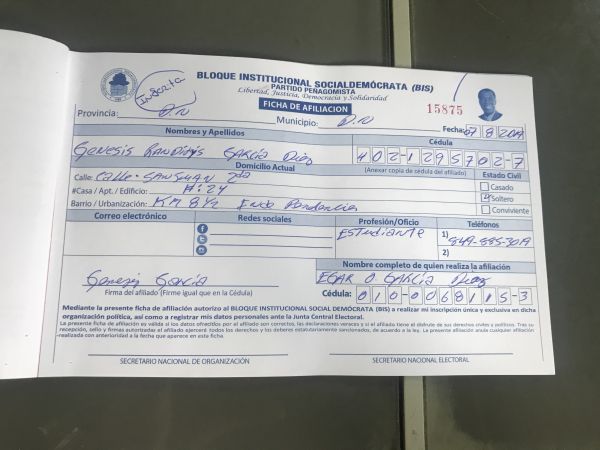 BLOQUE INSTITUCIONAL SOCIALDEMÓCRATA (BIS)
PARTIDO PEÑAGOMISTA
Libertad, Justicia, Democracia y Solidaridad
Inscrita
FICHA DE AFILIACION
15875
Provincia: D.N
Municipio: D.N
Fecha: 07 8 2019
Nombres y Apellidos
Cédula
Genesis García Diaz
402-1295702-7
Domicilio Actual
(Anexar copia de cédula del afiliado)
Calle: Calle. San Juan 2da
Estado Civil
#Casa / Apt. / Edificio: #: 24
Casado
Soltero
Barrio / Urbanización: KM 8 1/2
Conviviente
Correo electrónico
Redes sociales
Profesión/Oficio
Teléfonos
Estudiante
1) 849-885-3019
2)
Nombre completo de quien realiza la afiliación
Genesis García
EGAR O García Diaz
Firma del afiliado (Firme igual que en la Cédula)
Cédula: 010-0068115-3
Mediante la presente ficha de afiliación autorizo al BLOQUE INSTITUCIONAL SOCIAL DEMOCRATA (BIS) a realizar mi inscripción única y exclusiva en dicha
organización política, así como a registrar mis datos personales ante la Junta Central Electoral.
La presente ficha de afiliación es válida si los datos ofrecidos por el afiliado son correctos, las declaraciones veraces y si el afiliado tiene el disfrute de sus derechos civiles y políticos. Tras su
recepción, sello y firmas autorizadas el afiliado ejercer todos los derechos y los deberes estatutariamente sancionados, de acuerdo a la ley. La presente afiliación anula cualquier afiliación
realizada con anterioridad a la fecha que aparece en esta ficha.
SECRETARIO NACIONAL DE ORGANIZACIÓN
SECRETARIO NACIONAL ELECTORAL